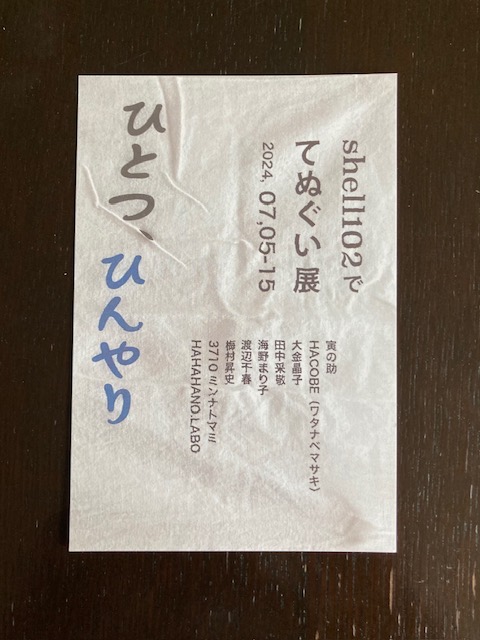 shell102で
てぬぐい展
2024, 07,05-15
寅の助
HACOBE（ワタナベマサキ）
大金晶子
田中采敬
海野まり子
渡辺千春
梅村昇史
3710ミンナトアマミ
HAHAHANO.LABO
ひとつ、ひんやり